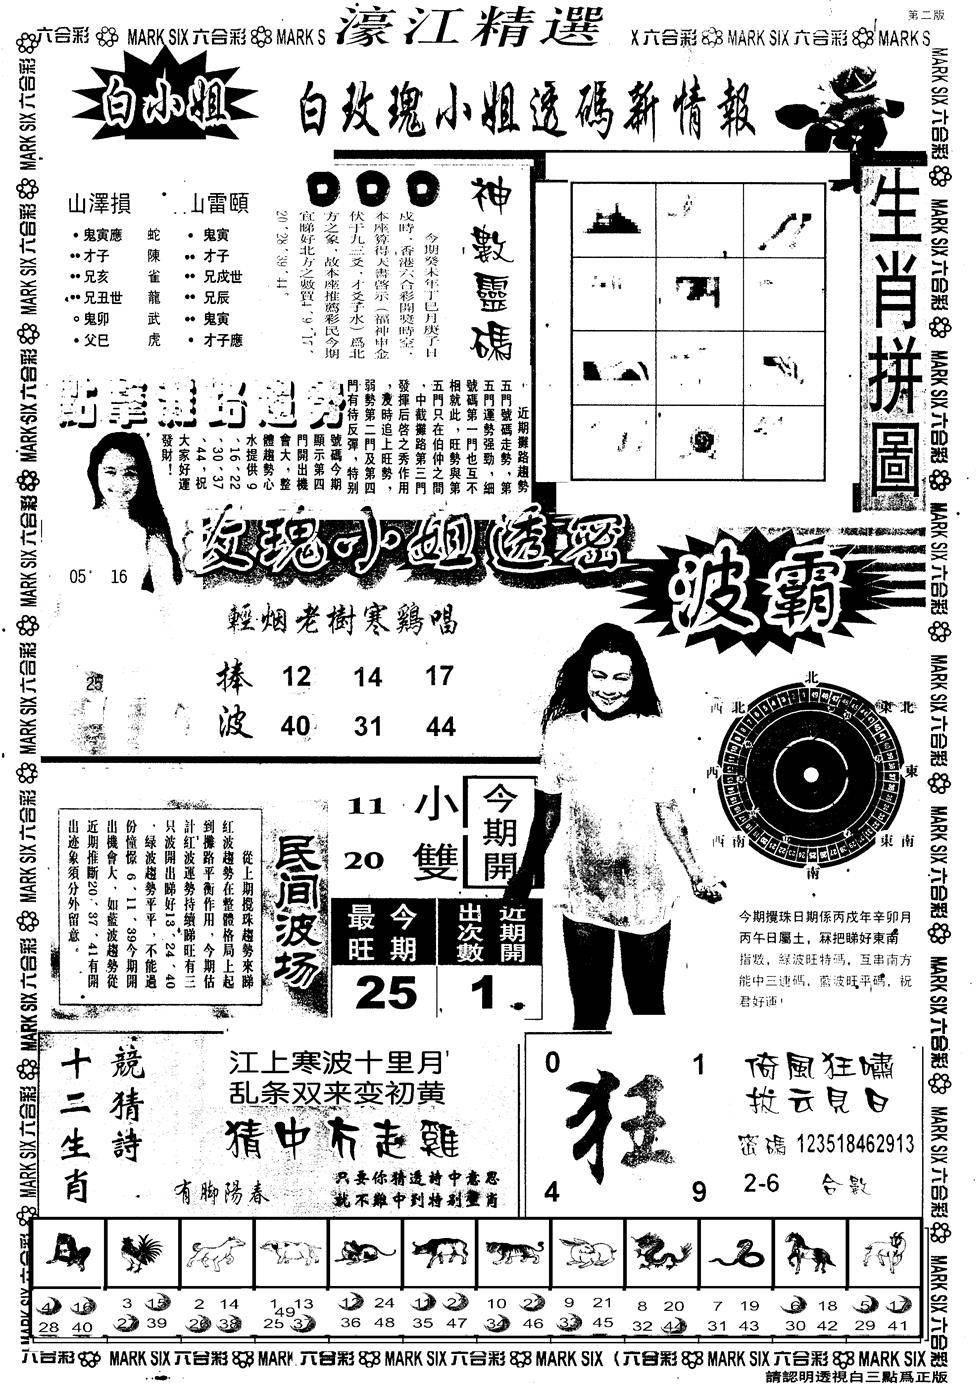 第二版
濠江精選
六合彩 MARK SIX 六合彩 MARK S
X 六合彩 MARK SIX 六合彩 MARK S
白小姐
白玫瑰小姐透碼新情報
山澤損
山雷頤
鬼寅應 蛇
才子 陳
兄亥 雀
兄丑世 龍
鬼卯 武
父巳 虎
鬼寅
才子
兄戍世
兄辰
鬼寅
才子應
神數靈碼
今期癸未年丁巳月庚子日
戍時，香港六合彩開獎時空，
本座算得天書啓示（福神申金
伏于九三爻，才爻子水）爲北
方之象，故本座推薦彩民今期
宜睇好北方之數買4、9、17、
20、28、39、44。
生肖拼圖
近期攤路趨勢
五門號碼走勢，第
五門運勢强勁，細
號碼第一門也互不
相就此，旺勢與第
五門只在伯仲之間
，中截攤路第三門
發揮后啓之秀作用
，及時追上旺勢，
弱勢第二門及第四
門有待反彈，特别
號碼今期
顯示第四
門開出機
會大，整
體趨勢心
水提供9
、16、22
、30、37
、44，祝
大家好運
發財！
05 16
25
玫瑰小姐透密
輕烟老樹寒鷄唱
捧 12 14 17
波 40 31 44
波霸
北
西北 東北
西 東
西南 東南
南
今期攪珠日期係丙戍年辛卯月
丙午日屬土，冧把睇好東南
指數，緑波旺特碼，互串南方
能中三連碼，藍波旺平碼，祝
君好運！
民间波场
從上期攪珠趨勢來睇
紅波趨勢在整體格局上起
到攤路平衡作用，今期估
計紅波運勢持續睇旺有三
只波開出睇好13、24、40
，緑波趨勢平平，不能過
份憧憬6、11、39今期開
出機會大，如藍波趨勢從
近期推断20、37、41有開
出迹象須分外留意。
11 小
20 雙
今期開
最旺 今期
出次數 近期開
25 1
十二生肖
競猜詩
江上寒波十里月
乱条双来变初黄
猜中冇走雞
有脚陽春
只要你猜透詩中意思
就不難中到特别生肖
0 1
狂
4 9
倚風狂嘯
拔云見日
密碼 123518462913
2-6 合數
4 16
28 40
3 15
27 39
2 14
26 38
1 13
49
25 37
12 24
36 48
11 23
35 47
10 22
34 46
9 21
33 45
8 20
32 44
7 19
31 43
6 18
30 42
5 17
29 41
六合彩 MARK SIX 六合彩 MARK 六合彩 MARK SIX 六合彩 MARK SIX 六合彩 MARK SIX 六合彩 MARK SIX
請認明透視白三點爲正版